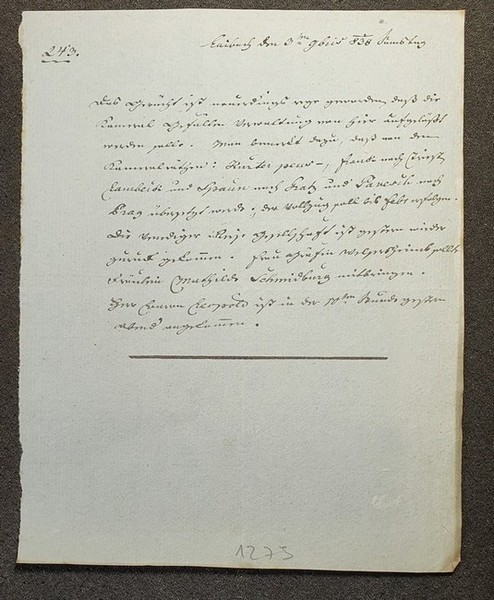 243.
Laibach den 3ten 9bris 838 Samstag
Das Gerücht ist neuerdings rege geworden, daß die
Kameral Gefällen Verwaltung von hier aufgelöst
werden solle. Man bemerkt dazu, daß von den
Kameralräthen: pens–, Frank nach Triest,
und Spaun nach Gratz und nach
Prag übersetzt werde:, der Vollzug soll bis Feber erfolgen.
Die venediger Reise Gesellschaft ist gestern wieder
zurück gekommen. Frau Gräfin Welsersheimb sollte
Fräulein Mathilde Schmidburg mitbringen.
Herr Baron Leopold ist in der 10ten Stunde gestern
abend angekommen.
1273